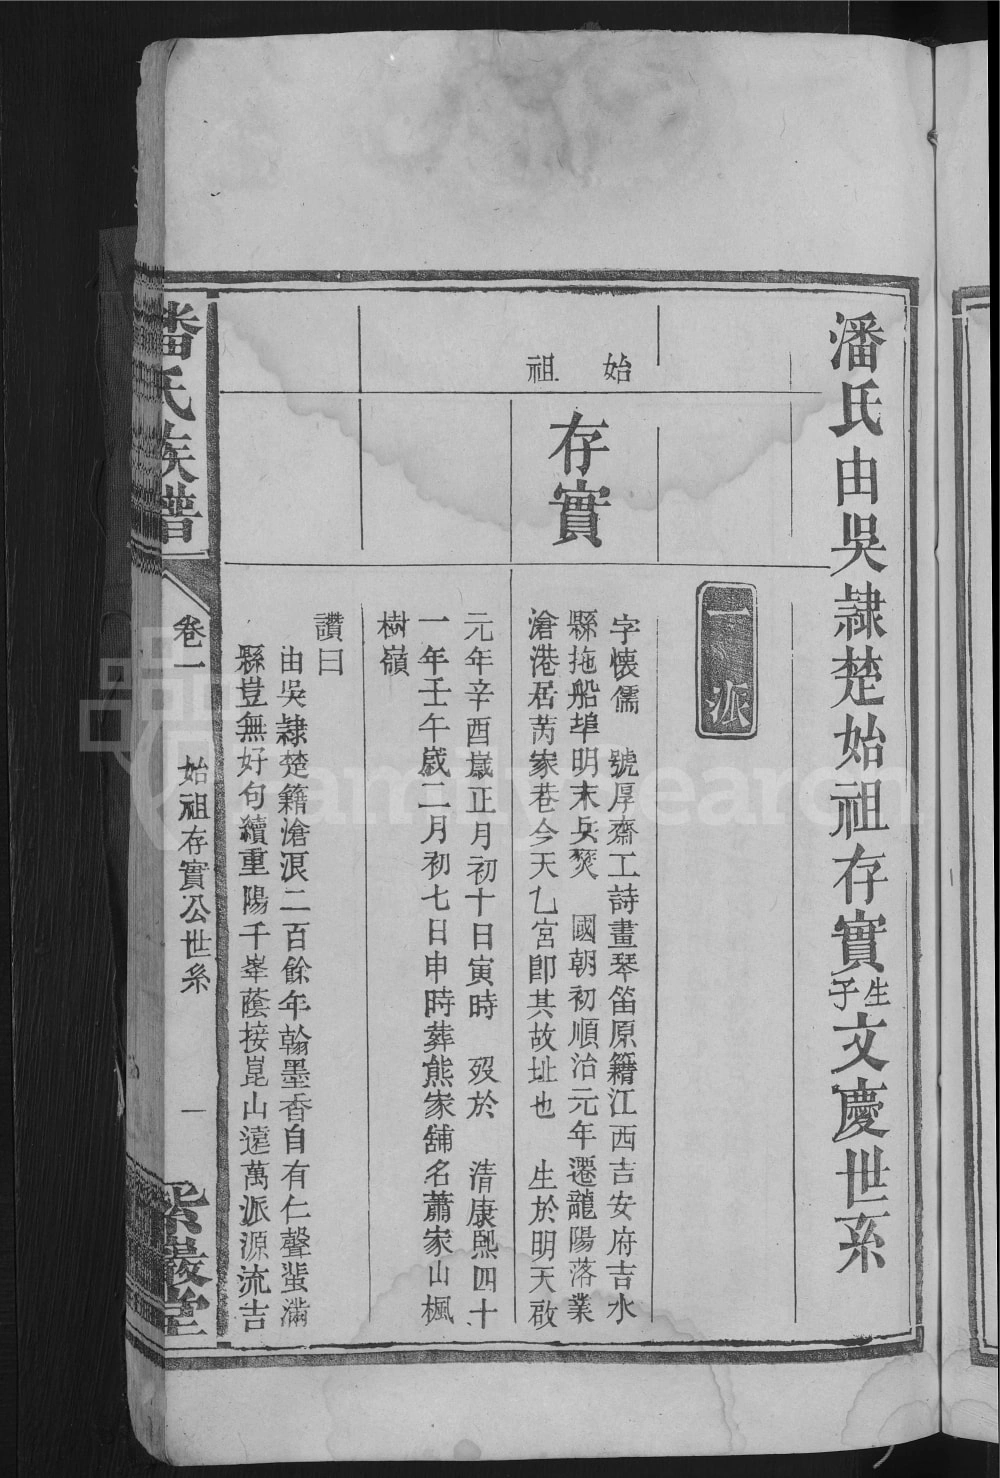 潘氏由吳隷楚始祖存實生子文慶世系
一派
始祖
存實
字懷儒　號厚齋工詩畫琴笛原籍江西吉安府吉水
縣拖船埠明末兵燹　國朝初順治元年遷龍陽落業
滄港居芮家巷今天乙宮卽其故址也　生於明天啟
元年辛酉嵗正月初十日寅時　歿於　清康熙四十
一年壬午嵗二月初七日申時葬熊家舖名蕭家山楓
樹嶺
讚曰
由吳隷楚籍滄浪二百餘年翰墨香自有仁聲蜚滿
縣豈無好句續重陽千峯蔭接崑山遠萬派源流吉
潘氏族譜
卷一
始祖存實公世系
一
紫巖堂
FamilySearch